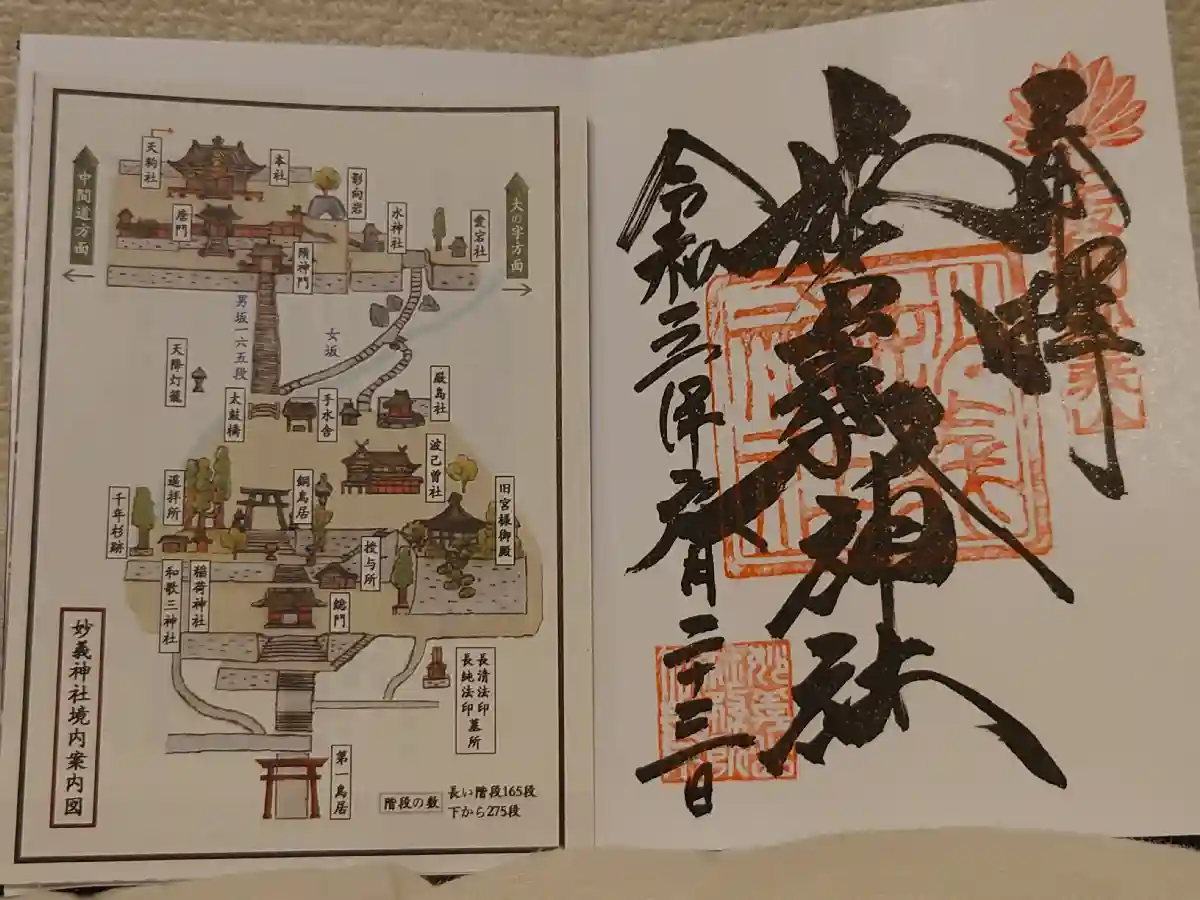 妙義神社
令和三年六月二十三日
天駒社
本社
影向岩
中間道方面
唐門
水神社
愛宕社
大の字方面
隨神門
男坂一六五段
女坂
天降灯籠
太鼓橋
手水舎
厳島社
波己曽社
千年杉跡
遥拝所
銅鳥居
旧宮様御殿
授与所
和歌三神社
稲荷神社
総門
長清法印
長純法印墓所
妙義神社境内案内図
第一鳥居
階段の数
長い階段165段
下から275段